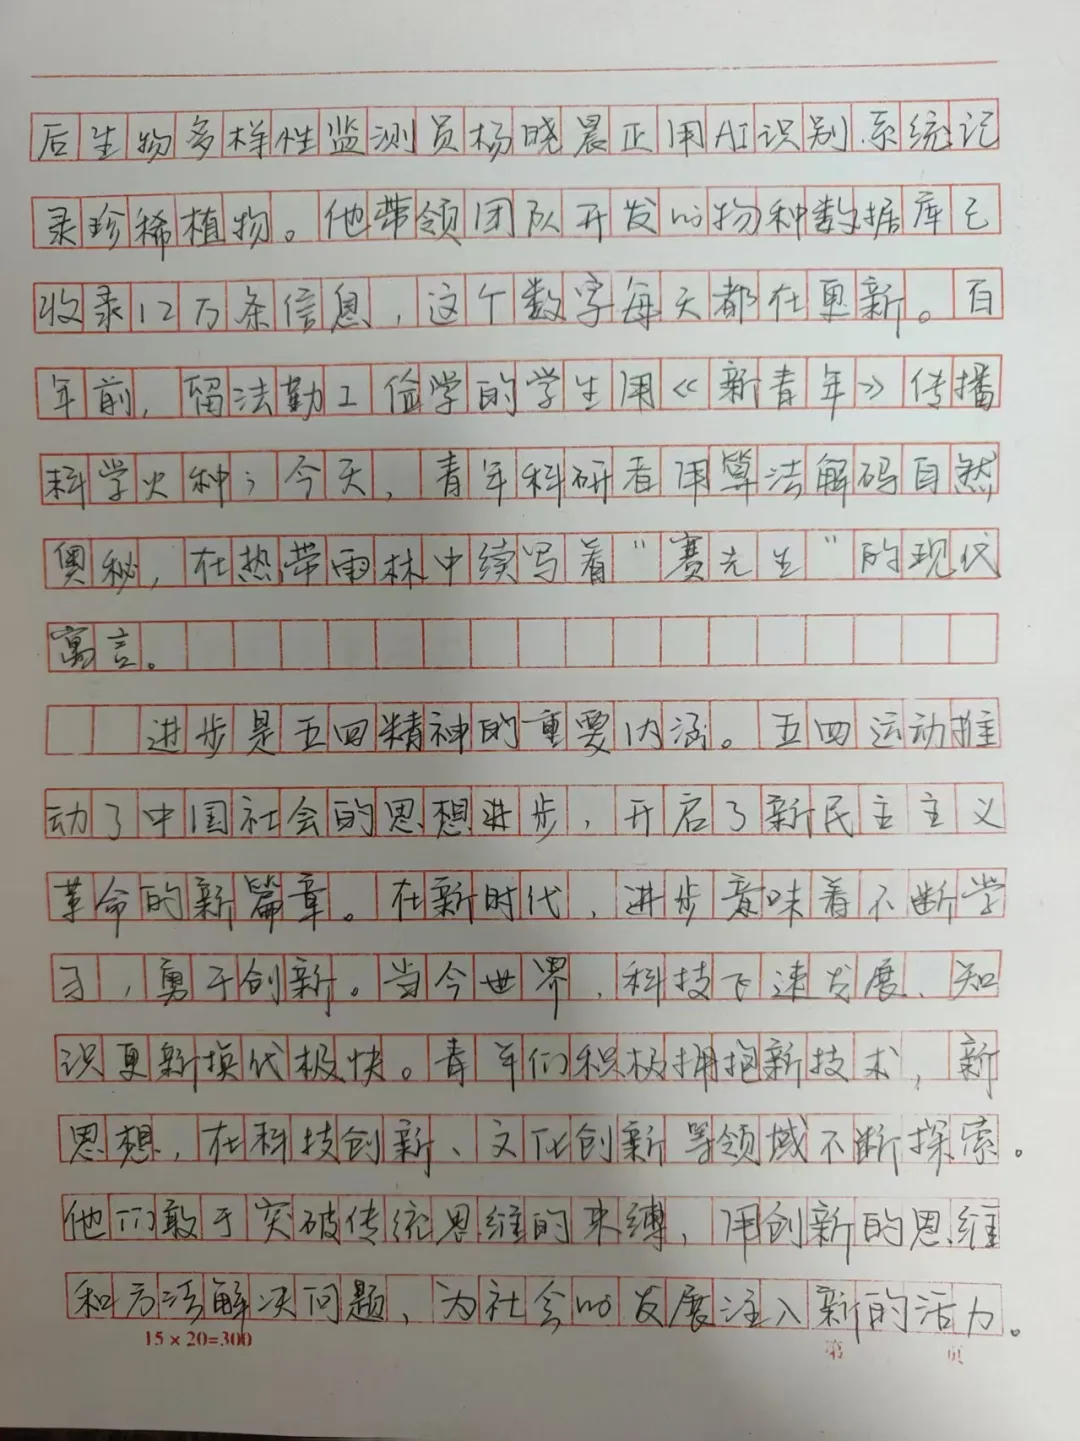 后生物多样性监测员杨晓晨正用AI识别系统记
录珍稀植物。他带领团队开发的物种数据库已
收录12万条信息，这个数字每天都在更新。百
年前，留法勤工俭学的学生用《新青年》传播
科学火种；今天，青年科研者用算法解码自然
奥秘，在热带雨林中续写着“赛先生”的现代
寓言。
进步是五四精神的重要内涵。五四运动推
动了中国社会的思想进步，开启了新民主主义
革命的新篇章。在新时代，进步意味着不断学
习，勇于创新。当今世界，科技飞速发展、知
识更新换代极快。青年们积极拥抱新技术，新
思想，在科技创新、文化创新等领域不断探索。
他们敢于突破传统思维的束缚，用创新的思维
和方法解决问题，为社会的发展注入新的活力。
15×20=300 第 页